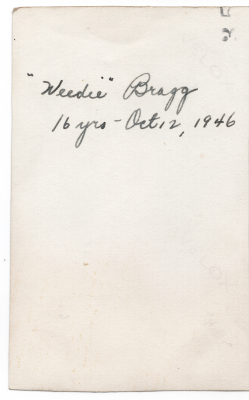 "Weedie" Bragg
16 yrs - Oct 12, 1946